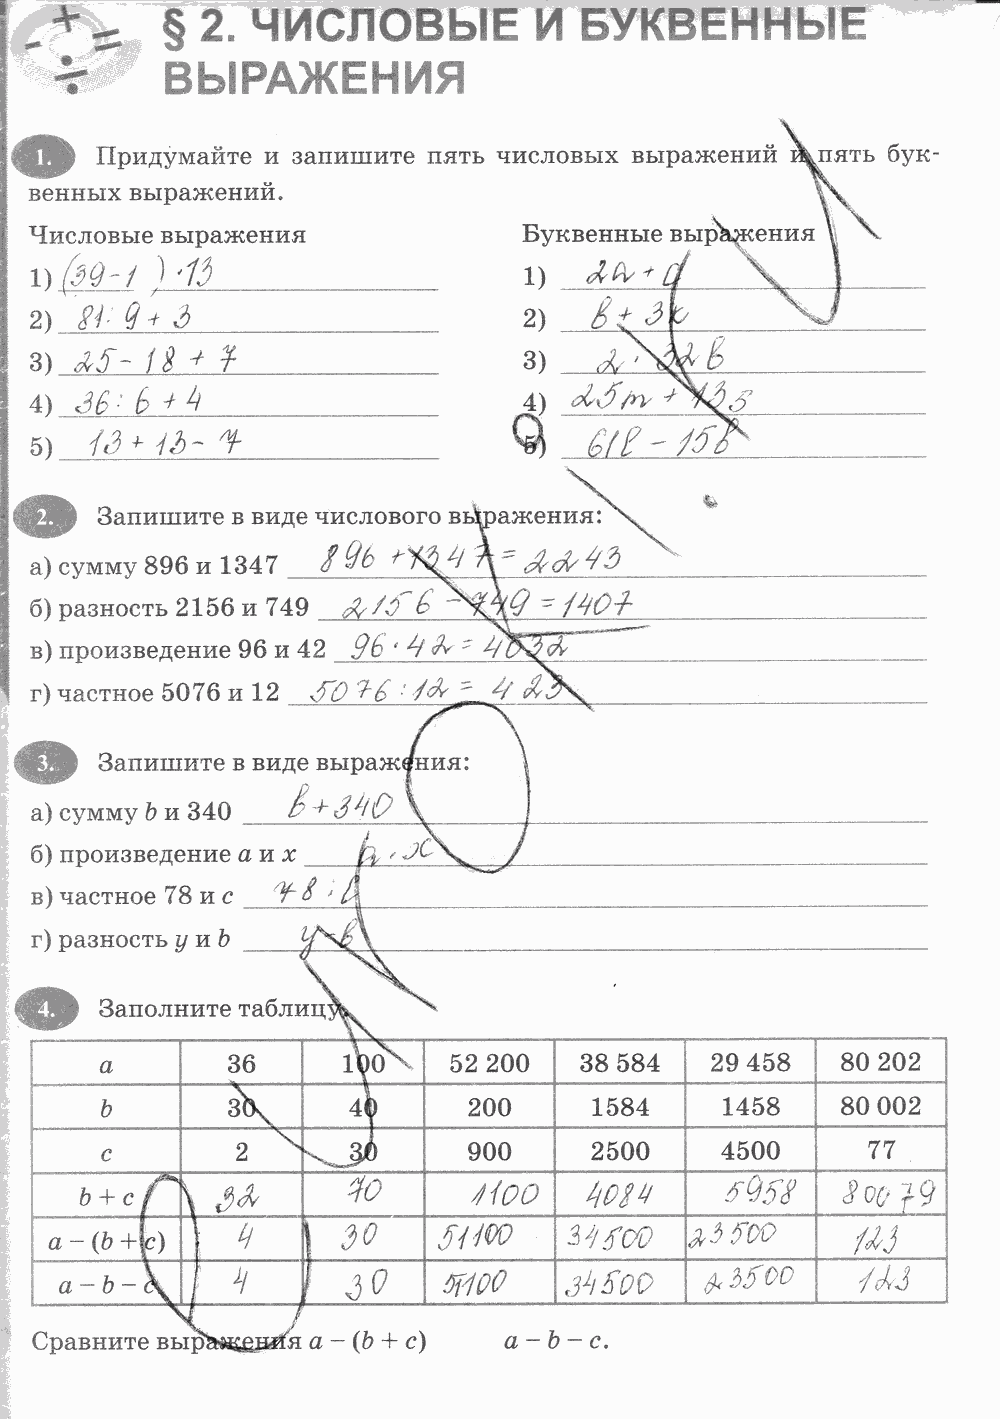 § 2. ЧИСЛОВЫЕ И БУКВЕННЫЕ
ВЫРАЖЕНИЯ
1. Придумайте и запишите пять числовых выражений и пять бук-
венных выражений.
Числовые выражения
1) (39-1)·13
2) 81:9+3
3) 25-18+7
4) 36:6+4
5) 13+13-7
Буквенные выражения
1) 2a+a
2) в+3к
3) 2·32в
4) 25m+13
5) 61в-15в
2. Запишите в виде числового выражения:
а) сумму 896 и 1347 896+1347=2243
б) разность 2156 и 749 2156-749=1407
в) произведение 96 и 42 96·42=4032
г) частное 5076 и 12 5076:12=423
3. Запишите в виде выражения:
а) сумму b и 340 в+340
б) произведение a и x a·x
в) частное 78 и c 78:c
г) разность y и b y-в
4. Заполните таблицу.
a 36 100 52 200 38 584 29 458 80 202
b 30 40 200 1584 1458 80 002
c 2 30 900 2500 4500 77
b + c 32 70 1100 4084 5958 80079
a − (b + c) 4 30 51100 34500 23500 123
a − b − c 4 30 51100 34500 23500 123
Сравните выражения a − (b + c) a − b − c.